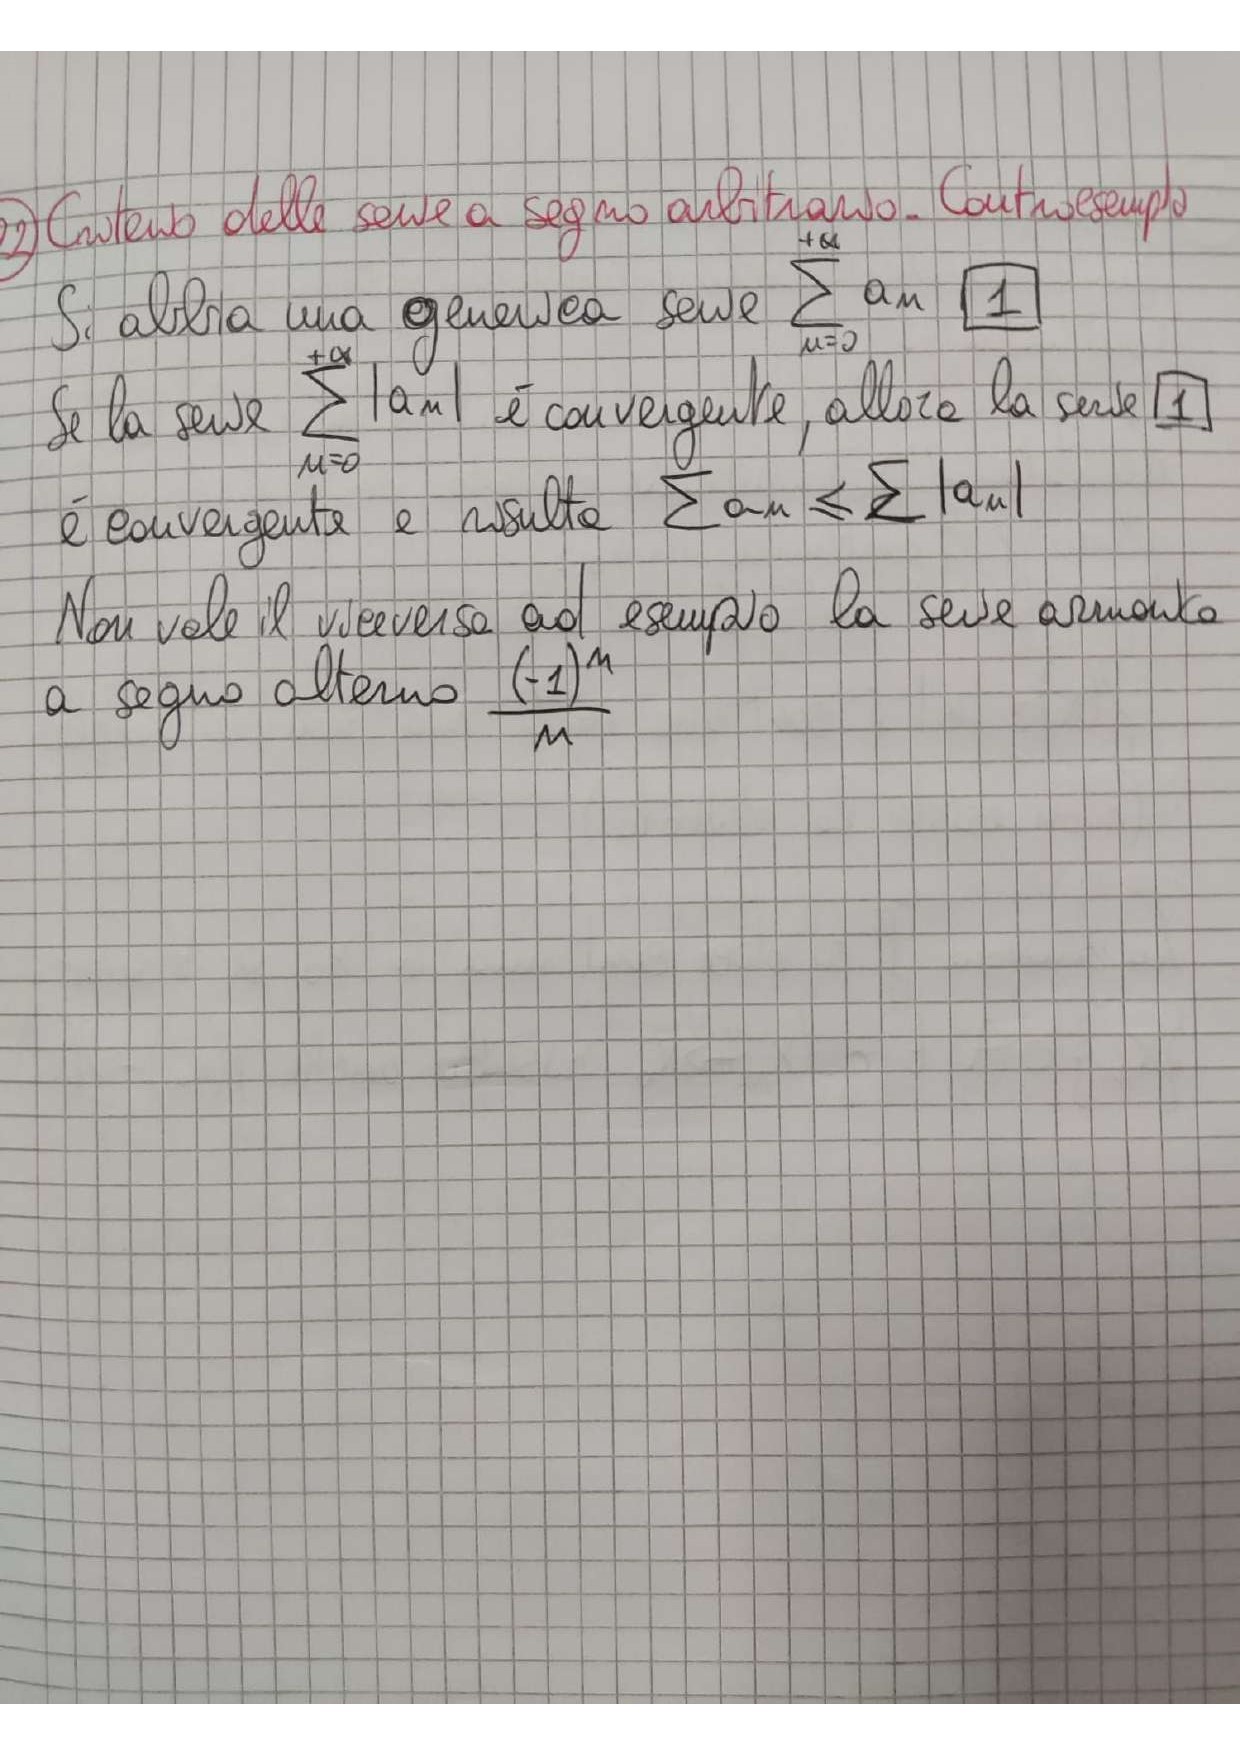 22) Criterio delle serie a segno arbitrario. Controesempio
Si abbia una generica serie +∞ ∑ n=0 an [1]
Se la serie +∞ ∑ n=0 |an| è convergente, allora la serie [1]
è convergente e risulta ∑ an ≤ ∑ |an|
Non vale il viceversa ad esempio la serie armonica
a segno alterno (-1)^n / n